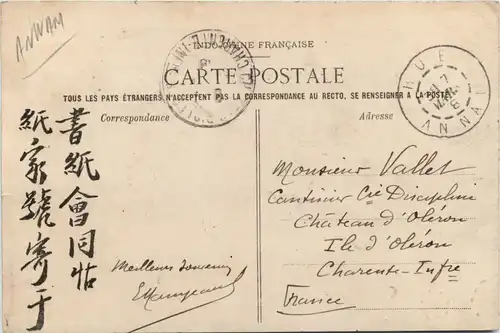 ANNAM
INDO-CHINE FRANÇAISE
CARTE POSTALE
TOUS LES PAYS ÉTRANGERS N'ACCEPTENT PAS LA CORRESPONDANCE AU RECTO, SE RENSEIGNER A LA POSTE
Correspondance
Adresse
HUE
7
MAI
ANNAM
書紙會同帖
紙家號寄于
Meilleurs Souvenirs
Monsieur Vallet
Cantinier Cie Discipline
Château d'Oléron
Ile d'Oléron
Charente-Infre
France